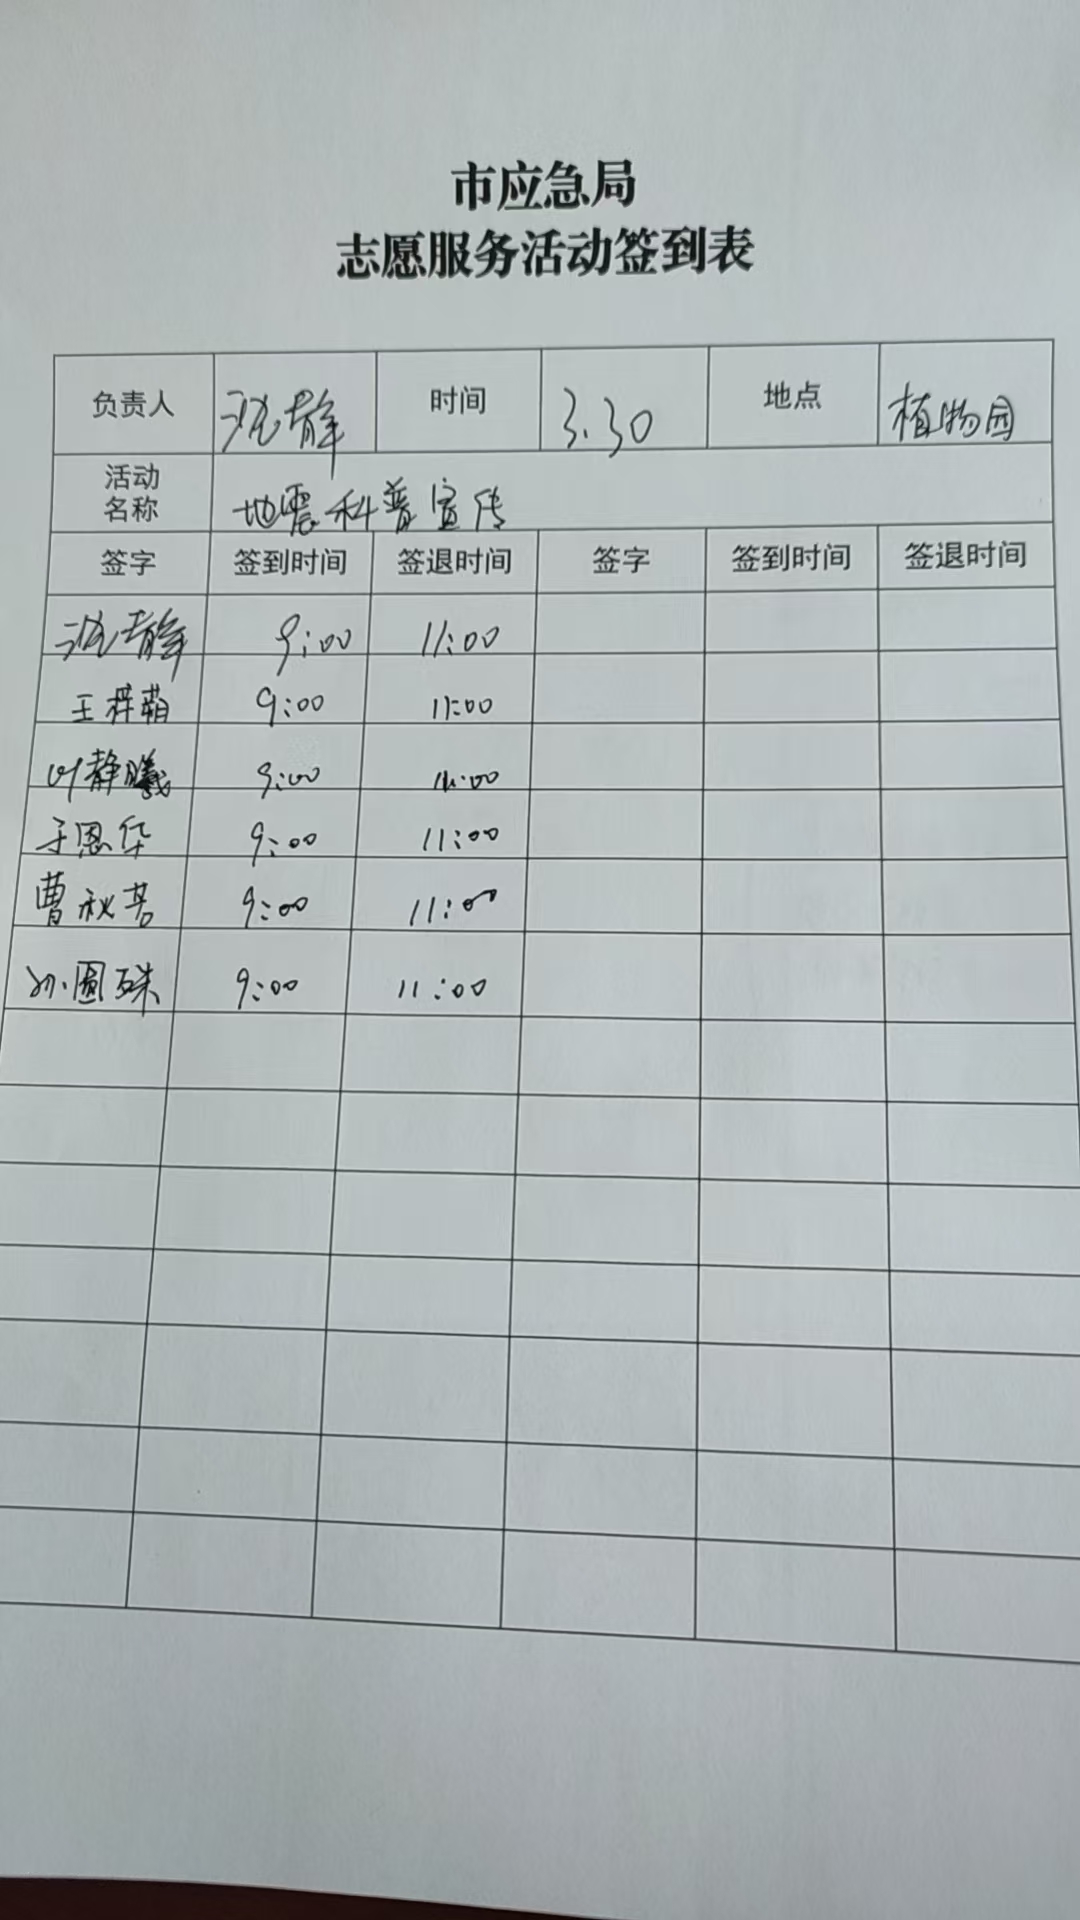 市应急局
志愿服务活动签到表
负责人 沈静 时间 3.30 地点 植物园
活动名称 地震科普宣传
签字 签到时间 签退时间 签字 签到时间 签退时间
沈静 9:00 11:00
王梓萌 9:00 11:00
叶静曦 9:00 11:00
于恩华 9:00 11:00
曹秋若 9:00 11:00
孙圆珠 9:00 11:00